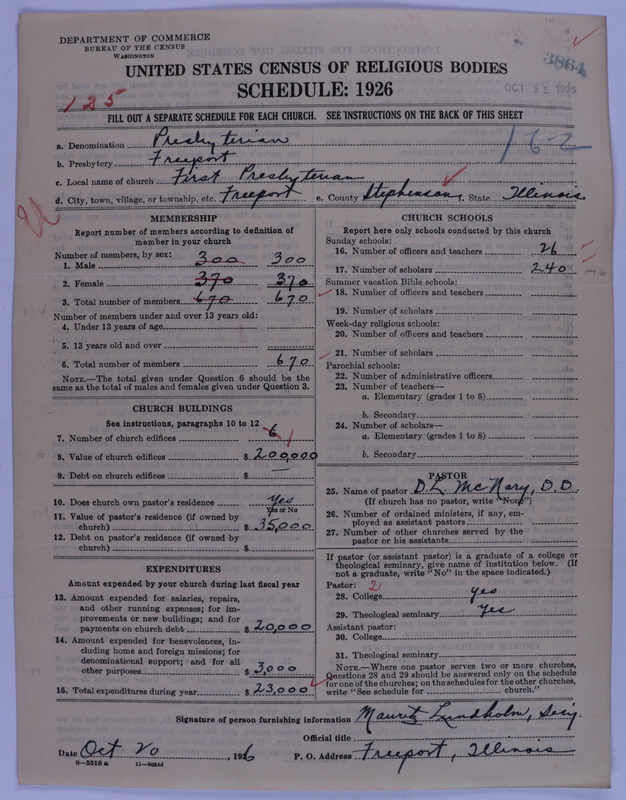 DEPARTMENT OF COMMERCE
BUREAU OF THE CENSUS
WASHINGTON
3864
OCT 25 1926
UNITED STATES CENSUS OF RELIGIOUS BODIES
SCHEDULE: 1926
125
FILL OUT A SEPARATE SCHEDULE FOR EACH CHURCH. SEE INSTRUCTIONS ON THE BACK OF THIS SHEET
1-6-2
a. Denomination Presbyterian
b. Presbytery Freeport
c. Local name of church First Presbyterian
d. City, town, village, or township, etc. Freeport e. County Stephenson, State Illinois
MEMBERSHIP
Report number of members according to definition of member in your church
Number of members, by sex:
1. Male 300 300
2. Female 370 370
3. Total number of members 670 670
Number of members under and over 13 years old:
4. Under 13 years of age
5. 13 years old and over
6. Total number of members 670
NOTE.—The total given under Question 6 should be the same as the total of males and females given under Question 3.
CHURCH BUILDINGS
See instructions, paragraphs 10 to 12
7. Number of church edifices 6 1
8. Value of church edifices $ 200,000
9. Debt on church edifices $ —
10. Does church own pastor's residence Yes
Yes or No
11. Value of pastor's residence (if owned by church) $ 35,000
12. Debt on pastor's residence (if owned by church) $
EXPENDITURES
Amount expended by your church during last fiscal year
13. Amount expended for salaries, repairs, and other running expenses; for improvements or new buildings; and for payments on church debt $ 20,000
14. Amount expended for benevolences, including home and foreign missions; for denominational support; and for all other purposes $ 3,000
15. Total expenditures during year $ 23,000
CHURCH SCHOOLS
Report here only schools conducted by this church
Sunday schools:
16. Number of officers and teachers 26
17. Number of scholars 240
Summer vacation Bible schools:
18. Number of officers and teachers
19. Number of scholars
Week-day religious schools:
20. Number of officers and teachers
21. Number of scholars
Parochial schools:
22. Number of administrative officers
23. Number of teachers—
a. Elementary (grades 1 to 8)
b. Secondary
24. Number of scholars—
a. Elementary (grades 1 to 8)
b. Secondary
PASTOR
25. Name of pastor D L McNary, D.D.
(If church has no pastor, write "None")
26. Number of ordained ministers, if any, employed as assistant pastors
27. Number of other churches served by the pastor or his assistants
If pastor (or assistant pastor) is a graduate of a college or theological seminary, give name of institution below. (If not a graduate, write "No" in the space indicated.)
Pastor: 2
28. College yes
29. Theological seminary Yes
Assistant pastor:
30. College
31. Theological seminary
NOTE.—Where one pastor serves two or more churches, Questions 28 and 29 should be answered only on the schedule for one of the churches; on the schedules for the other churches, write "See schedule for church."
Signature of person furnishing information Mauritz Lundholm, Secy.
Official title
Date Oct 20, 1926 P. O. Address Freeport, Illinois
8—5518 a